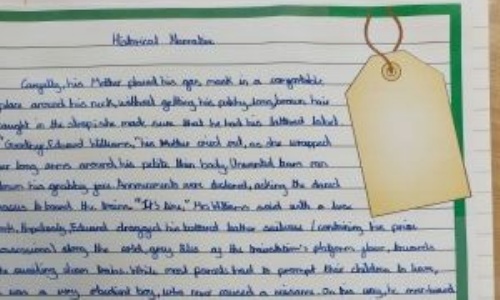 Historical Narrative
Carefully, his Mother placed his gas mask in a comfortable
place around his neck, without getting his long, brown hair
caught in the straps; she made sure that he had his tattered label
"Goodbye Edward Williams," his Mother cried out, as she wrapped
her long arms around his petite thin body. Unwanted tears ran
down his grubby face. Announcements were declared, asking the
to board the trains. "It's time," Mrs Williams said with a
Edward dragged his battered leather suitcase / containing his prize
possessions) along the cold, grey tiles of the trainstation's platform floor, towards
awaiting steam trains. While most parents had to prompt their children to leave,
was a very obedient boy, who never caused a nuisance. On his way, he